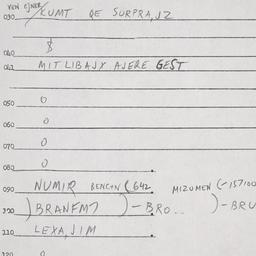 VEN EJNER
030 KUMT DE SURPRA,JZ
040 $
041 MIT LIBAJX AJERE GEST
050 0
060 0
070 0
080 0
090 NUMIR BENCTN (642 MIZUMEN (-157100
100 )BRANFMT )-BRO.. )-BRU
110 LEXA,JIM
120 0